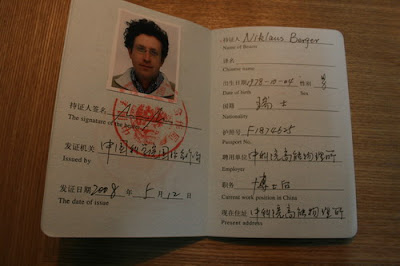 持证人签名
The signature of the
发证机关
Issued by
发证日期 2008 年 5 月 12 日
The date of issue
持证人 Niklaus Berger
Name of Bearer
译名
Chinese name
出生日期 1978-10-04 性别 男
Date of birth Sex
国籍 瑞士
Nationality
护照号 F1874625
Passport No.
聘用单位 中科院高能物理所
Employer
职务 博士后
Current work position in China
现在住址 中科院高能物理所
Present address